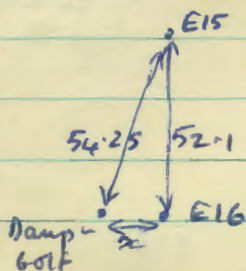 E15
54.25 52.1
E16
x
Damp-
Golf